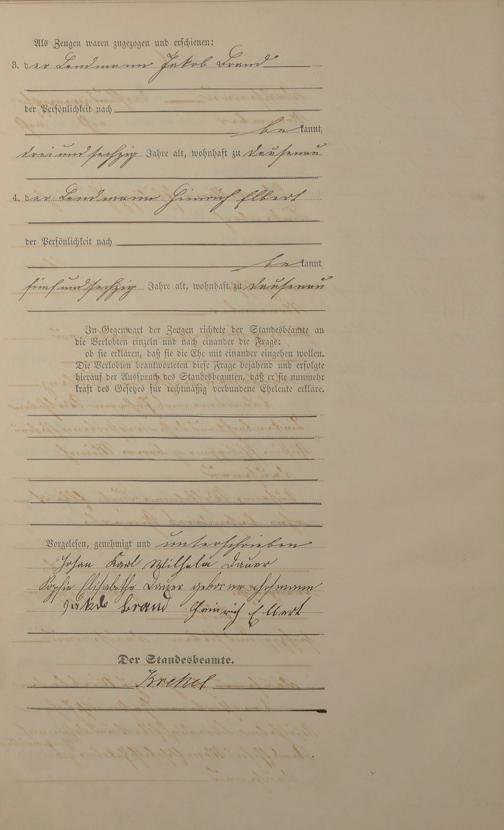 Als Zeugen waren zugezogen und erschienen:
3. der Landmann Jakob Brand
der Persönlichkeit nach
bekannt,
dreiundsechzig Jahre alt, wohnhaft zu Dausenau
4. der Landmann Heinrich Elbert
der Persönlichkeit nach
bekannt
fünfundsechzig Jahre alt, wohnhaft zu Dausenau
In Gegenwart der Zeugen richtete der Standesbeamte an
die Verlobten einzeln und nach einander die Frage:
ob sie erklären, daß sie die Ehe mit einander eingehen wollen.
Die Verlobten beantworteten diese Frage bejahend und erfolgte
hierauf der Ausspruch des Standesbeamten, daß er sie nunmehr
kraft des Gesetzes für rechtmäßig verbundene Eheleute erkläre.
Vorgelesen, genehmigt und unterschrieben
Johan Karl Wilhelm Dauer
Sophie Elisabethe Dauer
Brand Heinrich Elbert
Der Standesbeamte.
Krekel